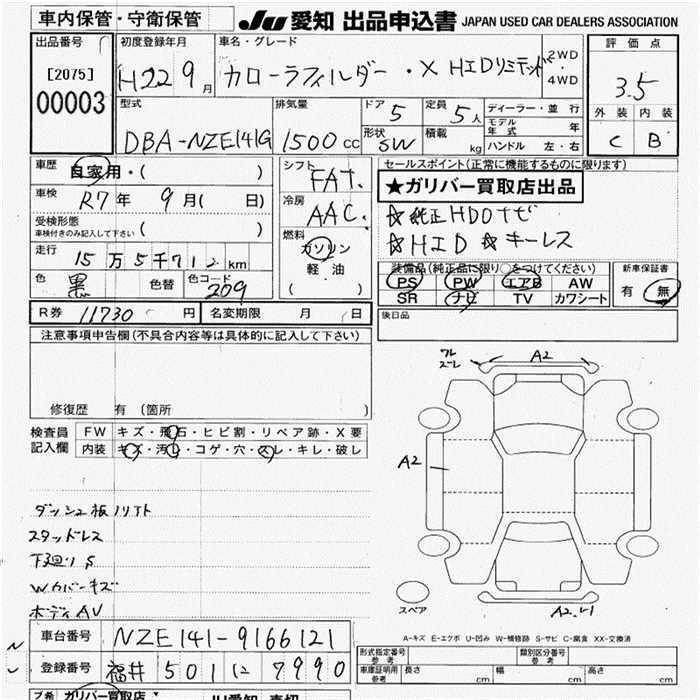 車内保管・守衛保管
JU 愛知 出品申込書 JAPAN USED CAR DEALERS ASSOCIATION
出品番号
[2075]
00003
初度登録年月
H22 9月
車名・グレード
カローラフィルダー・X HIDリミテッド
2WD
4WD
評価点
3.5
外装 内装
C B
型式
DBA-NZE141G
排気量
1500 CC
ドア 5
定員 5人
形状 SW
積載 kg
ディーラー・並行
モデル年式 年
ハンドル 左・右
車歴 自家用・( )
車検 R7年 9月( 日)
受検形態
車検付きのみ記入して下さい ( )
走行 15万5千712km
色 黒 色替 色コード 209
シフト FAT.
冷房 AAC.
燃料
ガソリン
軽油
( )
セールスポイント(正常に機能するものに限ります)
★ガリバー買取店出品
☆純正HDDナビ
☆HID ☆キーレス
装備品(純正品に限り○をつけてください)
PS PW エアB AW
SR ナビ TV カワシート
新車保証書
有 無
後日品
R券 11730 円 名変期限 月 日
注意事項申告欄(不具合内容等は具体的に記入して下さい)
修復歴 有(箇所 )
検査員記入欄
FW キズ・飛石・ヒビ割・リペア跡・X要
内装 キズ・汚レ・コゲ・穴・スレ・キレ・破レ
スタッドレス
下廻りS
Wカバーキズ
ボディAV
A2
A2
スペア
A-キズ E-エクボ U-凹み W-補修跡 S-サビ C-腐食 XX-交換済
車台番号 NZE141-9166121
登録番号 福井 501 7990
形式指定番号
参考
類別区分番号
参考
車庫証明用
参考
長さ cm 幅 cm 高さ cm
ガリバー買取店
JU愛知